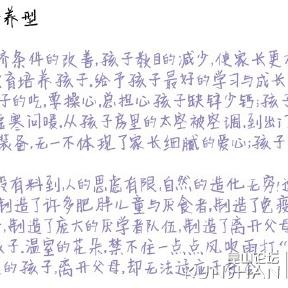 养型
济条件的改善,孩子数目的减少,使家长更有
育培养孩子,给予孩子最好的学习与成长
子的吃,要操心,总担心孩子缺锌少钙;孩子
嘘寒问暖,从孩子房里的太空被空调,到出门
装备,无一不体现了家长细腻的爱心;孩子
没有料到,人的思虑有限,自然的造化无穷!过
制造了许多肥胖儿童与厌食者,制造了免疫
,制造了庞大的厌学者队伍,制造了离开父母
孩子,温室的花朵,禁不住一点点风吹雨打."
的孩子,离开父母,却无法适应
KUNSHAN
论坛